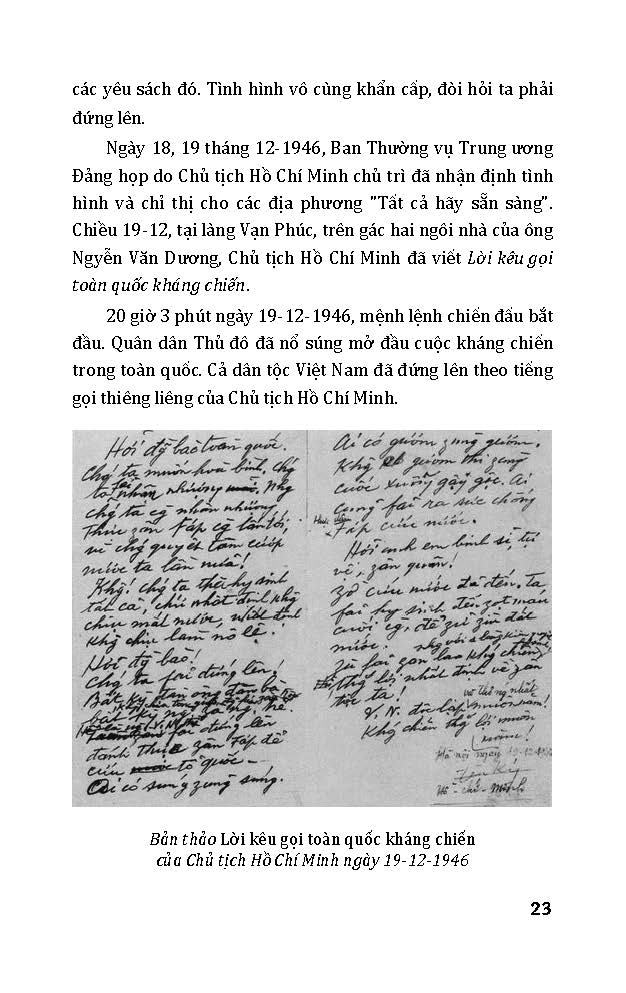 các yêu sách đó. Tình hình vô cùng khẩn cấp, đòi hỏi ta phải
đứng lên.
Ngày 18, 19 tháng 12-1946, Ban Thường vụ Trung ương
Đảng họp do Chủ tịch Hồ Chí Minh chủ trì đã nhận định tình
hình và chỉ thị cho các địa phương "Tất cả hãy sẵn sàng".
Chiều 19-12, tại làng Vạn Phúc, trên gác hai ngôi nhà của ông
Ngyễn Văn Dương, Chủ tịch Hồ Chí Minh đã viết Lời kêu gọi
toàn quốc kháng chiến.
20 giờ 3 phút ngày 19-12-1946, mệnh lệnh chiến đấu bắt
đầu. Quân dân Thủ đô đã nổ súng mở đầu cuộc kháng chiến
trong toàn quốc. Cả dân tộc Việt Nam đã đứng lên theo tiếng
gọi thiêng liêng của Chủ tịch Hồ Chí Minh.
Hỡi đg bào toàn quốc.
Chg ta muốn hoà bình, chg
ta fải nhân nhượng. Nhg
chg ta cg nhân nhượng,
thực zân Fáp cg lấn tới,
vì chg quyết tâm cướp
nước ta lần nữa!
Khg! chg ta thà hy sinh
tất cả, chứ nhất định khg
chịu mất nước, nhất định
khg chịu làm nô lệ.
Hỡi đg bào!
Chg ta fải đứng lên!
Bất kỳ đàn ông đàn bà
fải đứng lên
đánh thực zân Fáp để
cứu tổ quốc
Ai có súng zùng súng.
Ai có gươm zùng gươm,
Khg có gươm thì zùng
cuốc xuổng gậy gộc. Ai
cũng fải ra sức chống
Fáp cứu nước.
Hỡi anh em binh sĩ, tự
vệ, zân quân!
Zờ cứu nước đã đến. Ta
fải hy sinh đến zọt máu
cuối cg, để zữ zìn đất
nước.
Zù fải zan lao khg chiến,
thg lợi nhất định về zân
tộc ta!
và thống nhất
V.N. độc lập muôn năm!
Khg chiến thg lợi muôn
năm!
Hà nội ngày 19-12-1946
Hồ-chí-Minh
Bản thảo Lời kêu gọi toàn quốc kháng chiến
của Chủ tịch Hồ Chí Minh ngày 19-12-1946
23